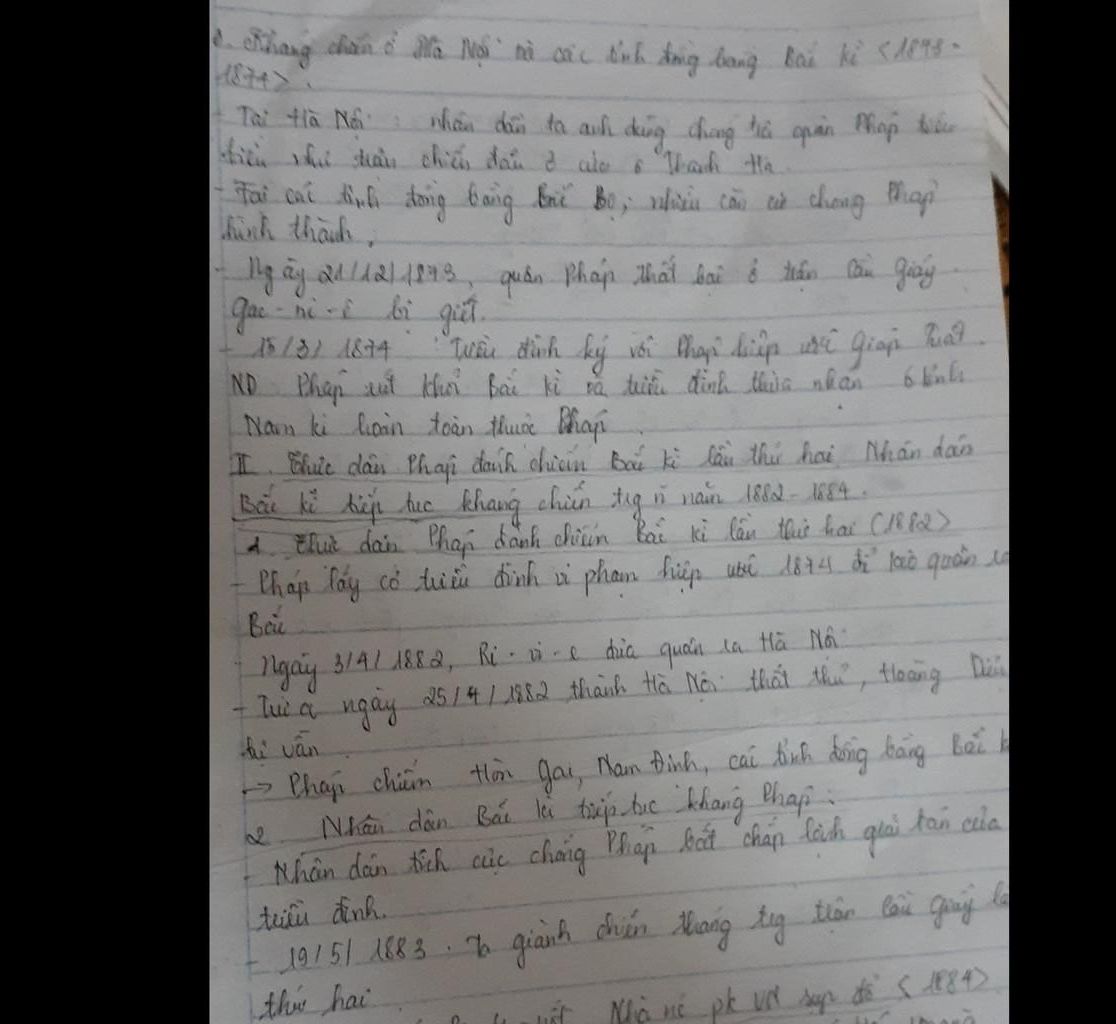 3. Kháng chiến ở Hà Nội và các tỉnh đồng bằng Bắc kì <1873-
1874>.
- Tại Hà Nội : nhân dân ta anh dũng chống trả quân Pháp tiêu
biểu như trận chiến đấu ở cửa ô Thanh Hà.
- Tại các tỉnh đồng bằng Bắc Bộ, nhiều căn cứ chống Pháp
hình thành,
- Ngày 21/12/1873, quân Pháp thất bại ở trận Cầu Giấy
Gac-ni-ê bị giết.
- 15/3/1874 : Triều đình ký với Pháp hiệp ước Giáp Tuất.
ND Pháp rút khỏi Bắc kì và triều đình thừa nhận 6 tỉnh
Nam kì hoàn toàn thuộc Pháp
II. Thực dân Pháp đánh chiếm Bắc kì lần thứ hai Nhân dân
Bắc kì tiếp tục kháng chiến trg n năm 1882-1884.
1. Thực dân Pháp đánh chiếm Bắc kì lần thứ hai (1882>
- Pháp lấy cớ triều đình vi phạm hiệp ước 1874 để kéo quân ra
Bắc
- Ngày 3/4/1882, Ri-vi-e đưa quân ra Hà Nội
- Trưa ngày 25/4/1882 thành Hà Nội thất thủ, Hoàng Diệu
tự vẫn
-> Pháp chiếm Hòn Gai, Nam Định, các tỉnh đồng bằng Bắc k
2 Nhân dân Bắc kì tiếp tục kháng Pháp:
- Nhân dân tích cực chống Pháp bất chấp lệnh giải tán của
triều đình.
- 19/5/1883. Ta giành chiến thắng trg trận Cầu Giấy lầ
thứ hai
Nhà nc pk VN sụp đổ <1884>